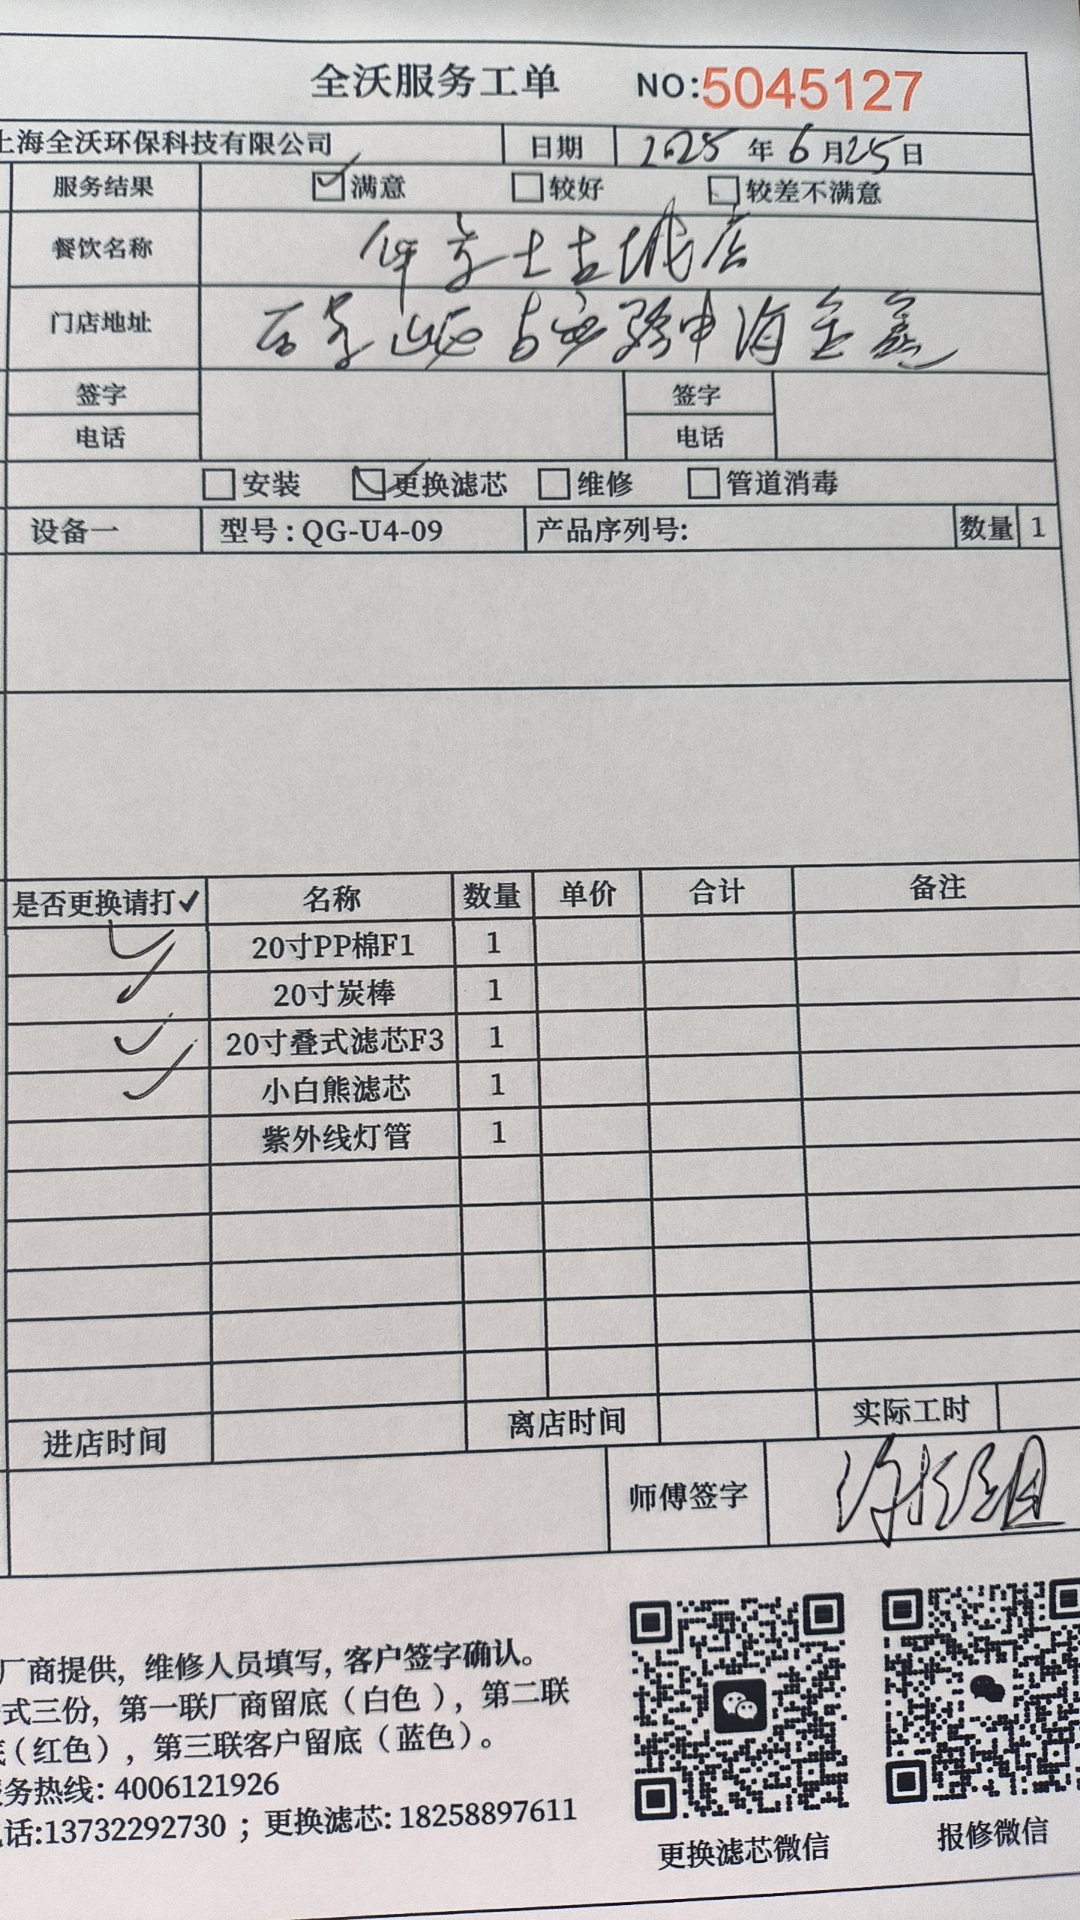 全沃服务工单 NO:5045127
上海全沃环保科技有限公司 日期 2025年6月25日
服务结果 满意 较好 较差不满意
餐饮名称 士古城店
门店地址
签字 签字
电话 电话
安装 更换滤芯 维修 管道消毒
设备一 型号:QG-U4-09 产品序列号: 数量 1
是否更换请打✓ 名称 数量 单价 合计 备注
✓ 20寸PP棉F1 1
✓ 20寸炭棒 1
✓ 20寸叠式滤芯F3 1
✓ 小白熊滤芯 1
紫外线灯管 1
进店时间 离店时间 实际工时
师傅签字
厂商提供, 维修人员填写, 客户签字确认。
式三份, 第一联厂商留底（白色）, 第二联
底（红色）, 第三联客户留底（蓝色）。
服务热线: 4006121926
电话:13732292730 ; 更换滤芯: 18258897611
更换滤芯微信 报修微信